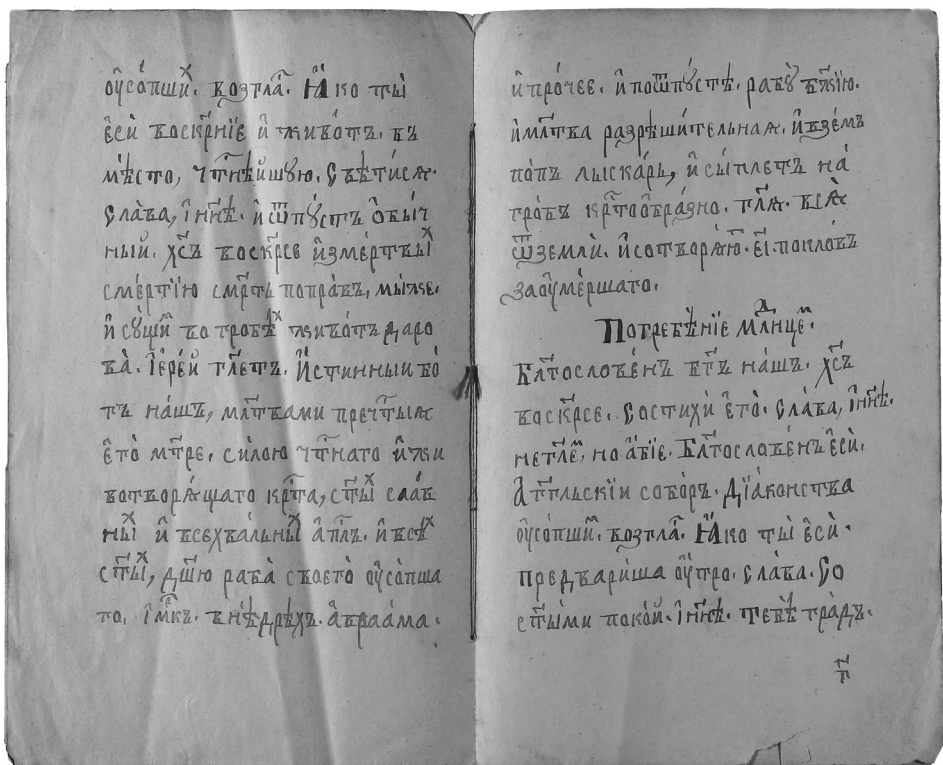 ᲂу҆со́пшиⷯ. возгла҃. Ꙗ҆́ко ты̀
є҆сѝ воскрⷭ҇нїе и҆ живо́тъ. въ
мѣ́сто, чтⷭ҇нѣ́йшую. Свѣти́сѧ.
Сла́ва, і҆ нн҃ѣ. и҆ ѿпꙋ́стъ ѻ҆бы́ч
ный. хрⷭ҇то́съ воскр҃се и҆зме́ртвыⷯ
сме́ртїю смр҃ть попра́въ, мы́же.
и҆ сꙋ́щиⷨ во гробѣⷯ живо́тъ даро
ва̀. І҆ере́й гл҃етъ. И҆́стинный бо́
гъ на́шъ, мл҃твами пречⷭ҇тыѧ
є҆гѡ̀ мт҃ре. си́лою чтⷭ҇наго и҆ жи
вотворѧ́щаго крⷭ҇та̀, ст҃ыⷯ слав
ныⷯ и҆ всехва́льныⷯ а҆пⷭ҇лъ. и҆ всѣⷯ
ст҃ыⷯ, дш҃ю раба̀ своего̀ ᲂу҆со́пша
го. і҆м҃къ. в нѣ́дрѣхъ. а҆враа́ма.
и҆ про́чее. и҆ поѿпꙋ́стѣ. рабꙋ̀ бж҃їю.
и҆ мл҃тва разрѣши́тельнаѧ. и҆ взе́мъ
по́пъ лыска́рь, и҆ сы́плетъ на́
гробъ крⷭ҇тоѻбра́зно. гл҃ѧ. всѧ̀
ѿ землѝ. и҆ сотворѧ́юⷮ. є҃і. покло́въ
заᲂуме́ршаго.
Погребѣ́нїе млⷣнцеⷨ.
Блгⷭ҇ослове́нъ бг҃ъ на́шъ. хрⷭ҇то́съ
воскр҃се. Со стихѝ є҆го̀. сла́ва, і҆ нн҃ѣ.
не гл҃еⷨ, но а҆́бїе. Блгⷭ҇ослове́нъ є҆сѝ.
А҆́гг҃льскїи собо́ръ. Дїа́конства
ᲂу҆со́пшиⷨ. возгла҃. Ꙗ҆́ко ты̀ є҆сѝ.
Предвари́ша ᲂу҆́тро. сла́ва. Со
ст҃ы́ми поко́й. і҆ нн҃ѣ. тебѣ̀ гра́дъ.
п҃г